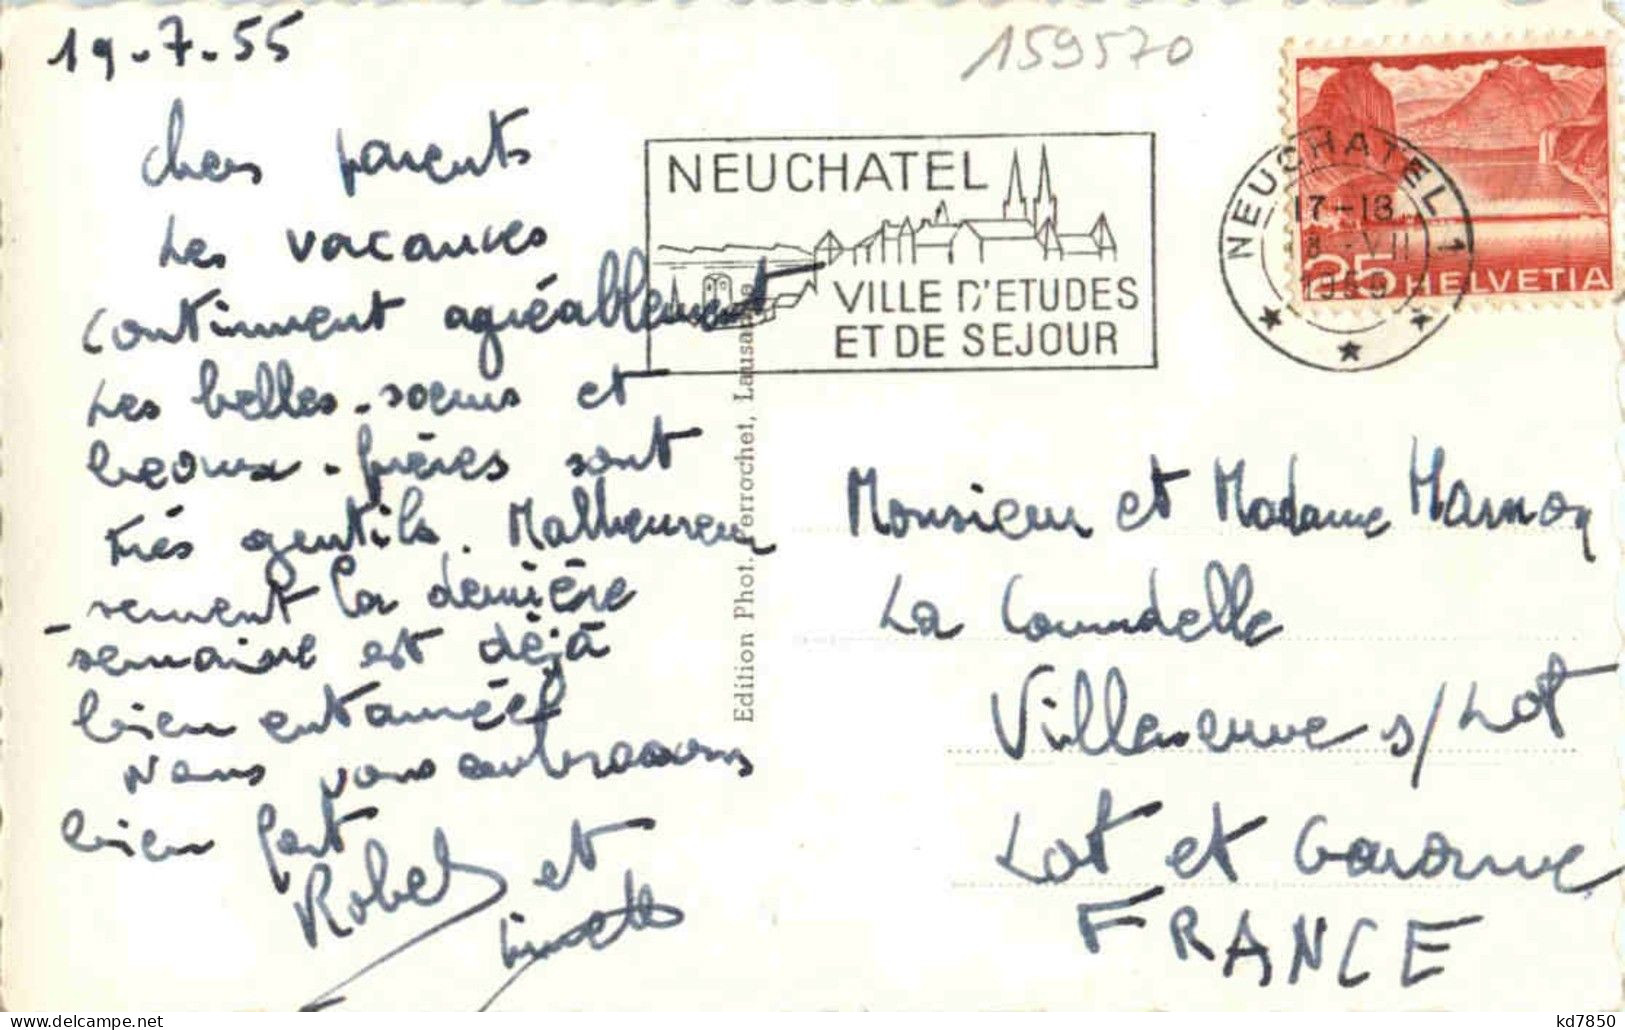 19-7-55
159570
Chers parents
Les vacances
continuent agréablement
Les belles-soeurs et
beaux-frères sont
très gentils. Malheureu
-sement la dernière
-semaine est déjà
bien entamée
Nous vous embrassons
bien fort
Robert et
NEUCHATEL
VILLE D'ETUDES
ET DE SEJOUR
NEUCHATEL 1
17-18
VII
25 HELVETIA
Edition Phot. Perrochet, Lausanne
Monsieur et Madame
La Courdelle
Villeneuve s/Lot
Lot et Garonne
FRANCE
kd7850